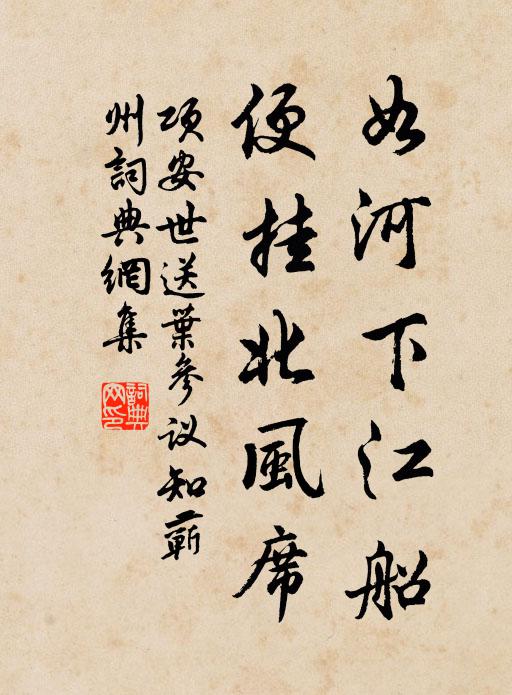 如河下江船
便挂北風席
项安世送葉参议知蕲
州詞典網集
詞典網印